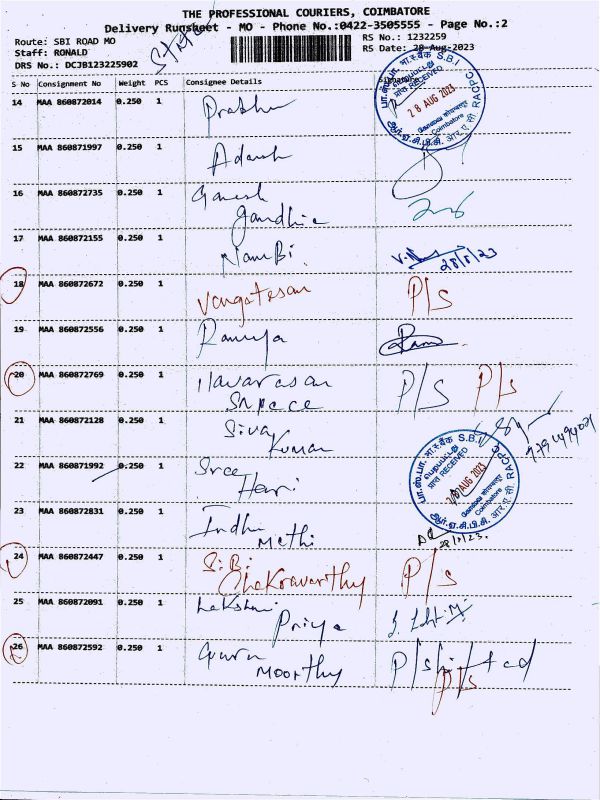 THE PROFESSIONAL COURIERS, COIMBATORE
Delivery Runsheet - MO - Phone No.:0422-3505555 - Page No.:2
Route: SBI ROAD MO
RS No.: 1232259
Staff: RONALD
RS Date: 28-Aug-2023
DRS No.: DCJB123225902
S No Consignment No Weight PCS Consignee Details Signature
14 MAA 860872014 0.250 1 Prabhu
S.B.I RACPC
RECEIVED
28 AUG 2023
Coimbatore
15 MAA 860871997 0.250 1 Adarsh
16 MAA 860872735 0.250 1 Ganesh
Gandhie
17 MAA 860872155 0.250 1 NamBi
28/8/23
18 MAA 860872672 0.250 1 Vengatesan P/S
19 MAA 860872556 0.250 1 Ramya
20 MAA 860872769 0.250 1 Ilavarasan P/S P/s
21 MAA 860872128 0.250 1 Siva
Kumar
22 MAA 860871992 0.250 1 Sree
Hari
S.B.I RACPC
RECEIVED
28 AUG 2023
Coimbatore
23 MAA 860872831 0.250 1 Indhu
Mathi
28/8/23.
24 MAA 860872447 0.250 1 SiBi
Chakravarthy P/s
25 MAA 860872091 0.250 1 Lakshmi
Priya
26 MAA 860872592 0.250 1 Guru
Moorthy P/shifted
P/s